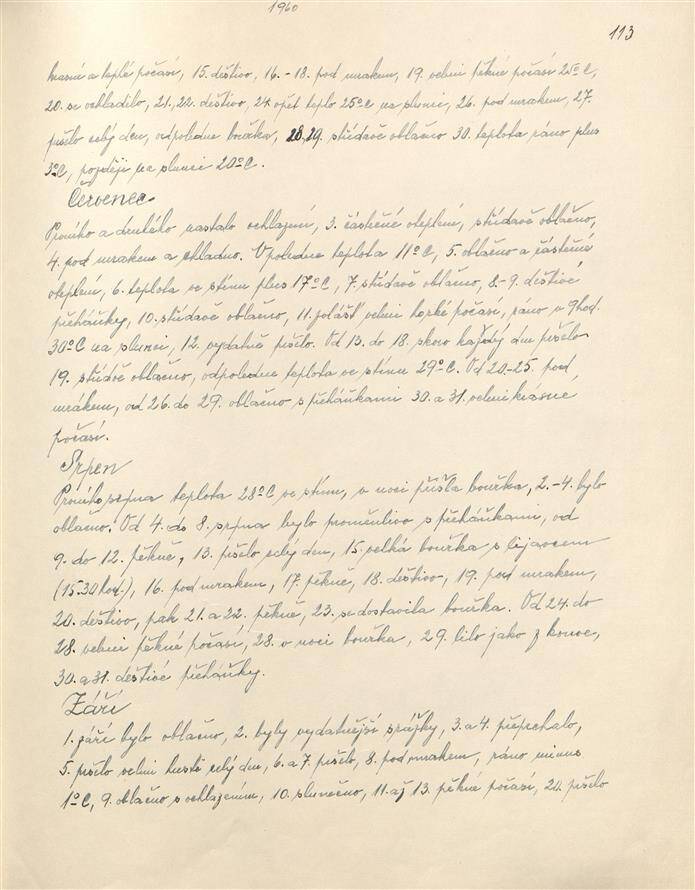 1960
113
krásné a teplé počasí, 15. deštivo, 16.-18. pod mrakem, 19. velmi pěkné počasí 25°C,
20. se ochladilo, 21., 22. deštivo, 24. opět teplo 25°C na slunci, 26. pod mrakem, 27.
pršelo celý den, odpoledne bouřka, 28. 29. střídavě oblačno 30. teplota ráno plus
3°C, později na slunci 20°C.
Červenec
Prvního a druhého nastalo ochlazení, 3. částečné oteplení, střídavě oblačno,
4. pod mrakem a chladno. V poledne teplota 11°C, 5. oblačno a částečné
oteplení, 6. teplota ve stínu plus 17°C, 7. střídavě oblačno, 8.-9. deštivé
přeháňky, 10. střídavě oblačno, 11. zvlášť velmi horké počasí, ráno v 9 hod.
30°C na slunci, 12. vydatně pršelo. Od 13. do 18. skoro každý den pršelo
19. střídavě oblačno, odpoledne teplota ve stínu 29°C. Od 20-25. pod
mrakem, od 26. do 29. oblačno s přeháňkami 30. a 31. velmi krásné
počasí.
Srpen
Prvního srpna teplota 28°C ve stínu, v noci přišla bouřka, 2.-4. bylo
oblačno. Od 4. do 8. srpna bylo proměnlivo s přeháňkami, od
9. do 12. pěkně, 13. pršelo celý den, 15. velká bouřka s lijavcem
(15.30 hod.), 16. pod mrakem, 17. pěkně, 18. deštivo, 19. pod mrakem,
20. deštivo, pak 21. a 22. pěkně, 23. se dostavila bouřka. Od 24. do
28. velmi pěkné počasí, 28. v noci bouřka, 29. lilo jako z konve,
30. a 31. deštivé přeháňky.
Září
1. září bylo oblačno, 2. byly vydatnější srážky, 3. a 4. přeprchalo,
5. pršelo velmi hustě celý den, 6. a 7. pršelo, 8. pod mrakem, ráno minus
1°C, 9. oblačno s ochlazením, 10. slunečno, 11. až 13. pěkné počasí, 20. pršelo